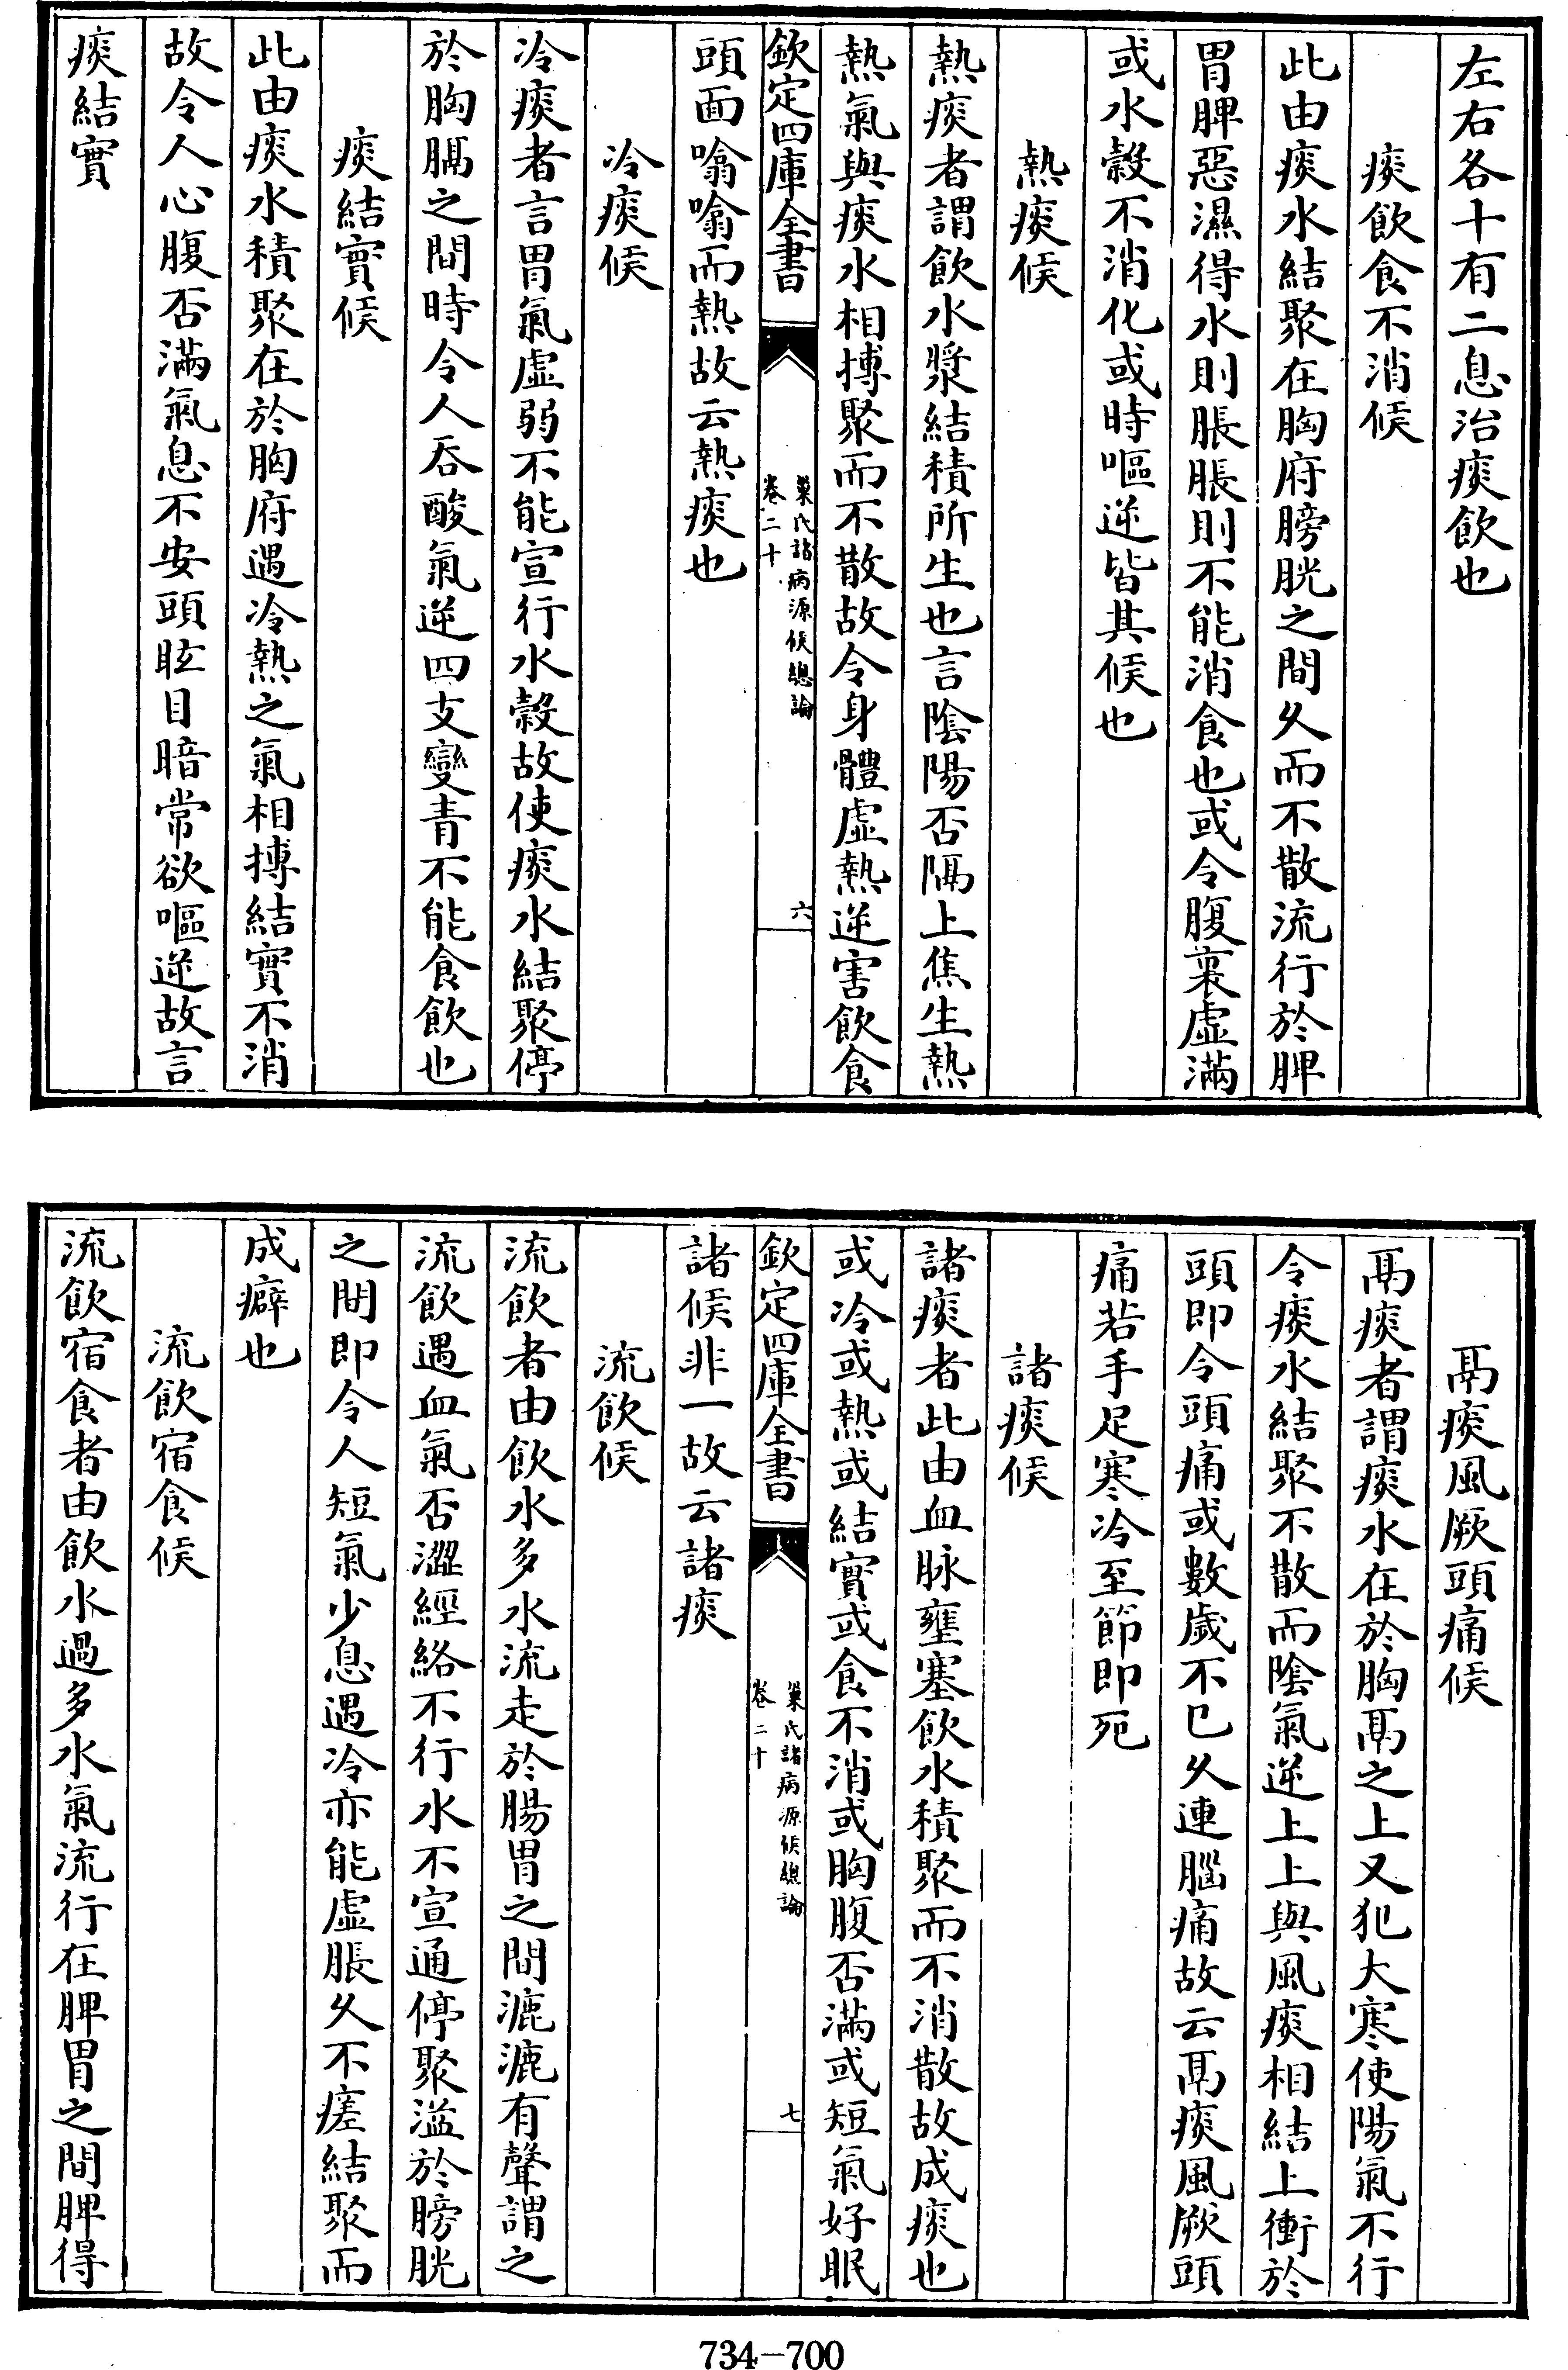 左右各十有二息治痰飲也
痰飲食不消候
此由痰水結聚在胸府膀胱之間久而不散流行於脾
胃脾惡濕得水則脹脹則不能消食也或令腹裏虛滿
或水穀不消化或時嘔逆皆其候也
熱痰候
熱痰者謂飲水漿結積所生也言陰陽否隔上焦生熱
熱氣與痰水相搏聚而不散故令身體虛熱逆害飲食
欽定四庫全書
巢氏諸病源候總論
卷二十
六
頭面噏噏而熱故云熱痰也
冷痰候
冷痰者言胃氣虛弱不能宣行水穀故使痰水結聚停
於胸膈之間時令人吞酸氣逆四支變青不能食飲也
痰結實候
此由痰水積聚在於胸府遇冷熱之氣相搏結實不消
故令人心腹否滿氣息不安頭眩目暗常欲嘔逆故言
痰結實
鬲痰風厥頭痛候
鬲痰者謂痰水在於胸鬲之上又犯大寒使陽氣不行
令痰水結聚不散而陰氣逆上上與風痰相結上衝於
頭即令頭痛或數歲不已久連腦痛故云鬲痰風厥頭
痛若手足寒冷至節即死
諸痰候
諸痰者此由血脉壅塞飲水積聚而不消散故成痰也
或冷或熱或結實或食不消或胸腹否滿或短氣好眠
欽定四庫全書
巢氏諸病源候總論
卷二十
七
諸候非一故云諸痰
流飲候
流飲者由飲水多水流走於腸胃之間漉漉有聲謂之
流飲遇血氣否澀經絡不行水不宣通停聚溢於膀胱
之間即令人短氣少息遇冷亦能虛脹久不瘥結聚而
成癖也
流飲宿食候
流飲宿食者由飲水過多水氣流行在脾胃之間脾得
734-700